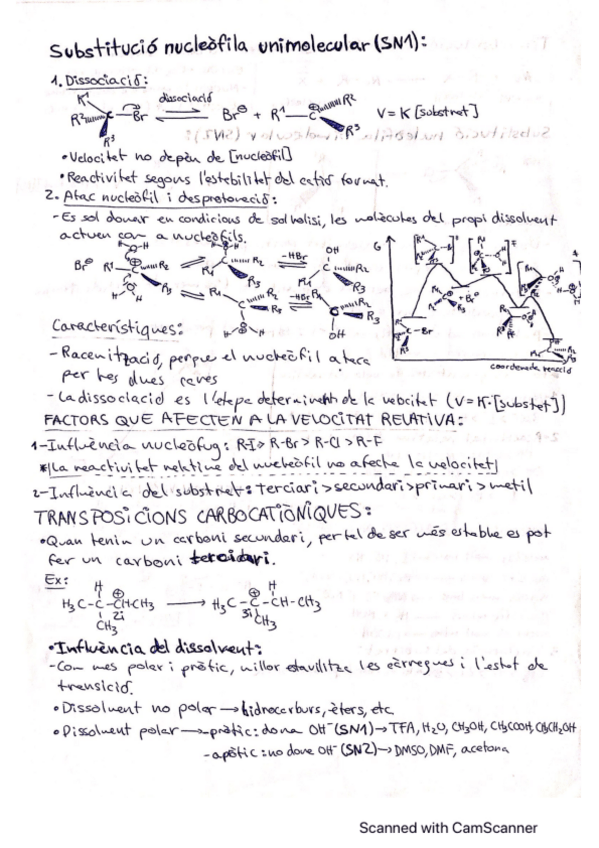 Substitució nucleòfila unimolecular (SN1):
1. Dissociació:
R¹ R² R³ C-Br dissociació Br⊖ + R¹-C⊕ R² R³ V = K [substret]
• Velocitat no depèn de [nucleòfil]
• Reactivitat segons l'estabilitat del catió format.
2. Atac nucleòfil i desprotonació:
- Es sol donar en condicions de solvolisi, les molècules del propi dissolvent
actuen com a nucleòfils.
Br⊖ R1 C⊕ R2 R3 -HBr OH
-HBr OH
G C-Br + Br⊖
coordenada reacció
Característiques:
- Racemització, perque el nucleòfil ataca
per les dues cares
- La dissociació es l'etapa determinant de la velocitat (V=K·[substret])
FACTORS QUE AFECTEN A LA VELOCITAT RELATIVA:
1-Influència nucleòfug: R-I > R-Br > R-Cl > R-F
*[La reactivitat relativa del nucleòfil no afecta la velocitat]
2-Influència del substret: terciari > secundari > primari > metil
TRANSPOSICIONS CARBOCATIÒNIQUES:
• Quan tenim un carboni secundari, per tal de ser més estable es pot
fer un carboni terciari.
Ex:
H ⊕ H
H₃C-C-CHCH₃ → H₃C-C-CH-CH₃
CH₃ CH₃
• Influència del dissolvent:
- Com mes polar i pròtic, millor estavilitza les càrregues i l'estat de
transició.
• Dissolvent no polar → hidrocarburs, èters, etc
• Dissolvent polar → -pròtic: dona OH⁻ (SN1) → TFA, H₂O, CH₃OH, CH₃COOH, CH₃CH₂OH
-apòtic: no dona OH⁻ (SN2) → DMSO, DMF, acetona
Scanned with CamScanner